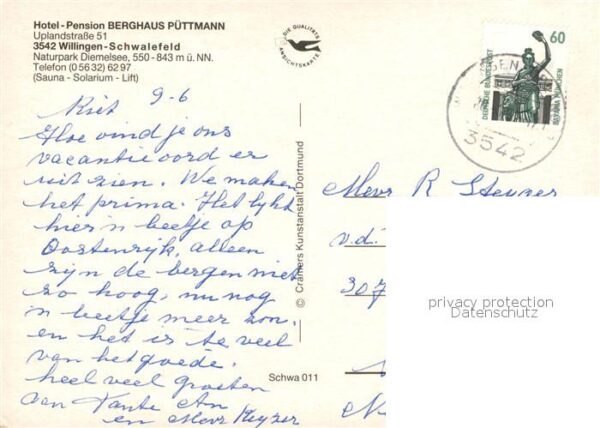 Hotel-Pension BERGHAUS PÜTTMANN
Uplandstraße 51
3542 Willingen-Schwalefeld
Naturpark Diemelsee, 550-843 m ü. NN.
Telefon (0 56 32) 62 97
(Sauna - Solarium - Lift)
DIE QUALITÄTS
ANSICHTSKARTE
60
DEUTSCHE BUNDESPOST
BAVARIA MÜNCHEN
3542
9-6
Hoe vind je ons
vacantie oord er
uit zien. We maken
het prima. Het lijkt
hier 'n beetje op
Oostenrijk, alleen
zijn de bergen niet
zo hoog, nu nog
'n beetje meer zon,
en het is te veel
van het goede.
heel veel groeten
van Tante An
en Mevr Keyzer
© Cramers Kunstanstalt Dortmund
Schwa 011
Mevr R
v.d.
307
privacy protection
Datenschutz